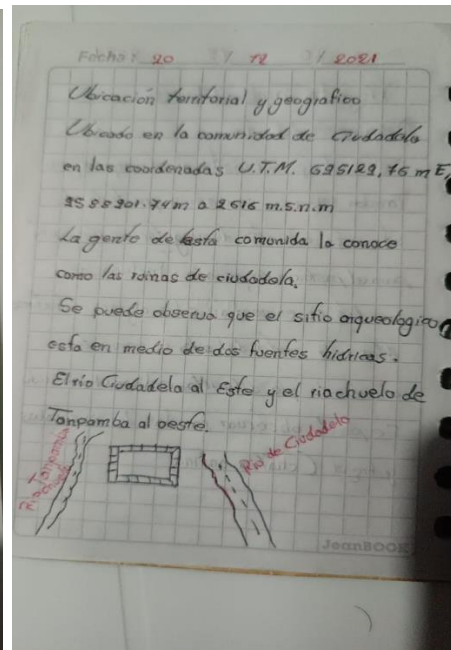 Fecha: 20 / 12 / 2021
Ubicación territorial y geografico
Ubicado en la comunidad de Ciudadela
en las coordenadas U.T.M. 695129,76 m E,
9588901.74m a 2616 m.s.n.m
La gente de esta comunida la conoce
como las roinas de ciudadela.
Se puede observa que el sitio arqueologico
esta en medio de dos fuentes hidricas.
El río Ciudadela al Este y el riachuelo de
Tanpamba al oeste.
Riachuelo Tanpamba
Rio de Ciudadela
JeanBOOK